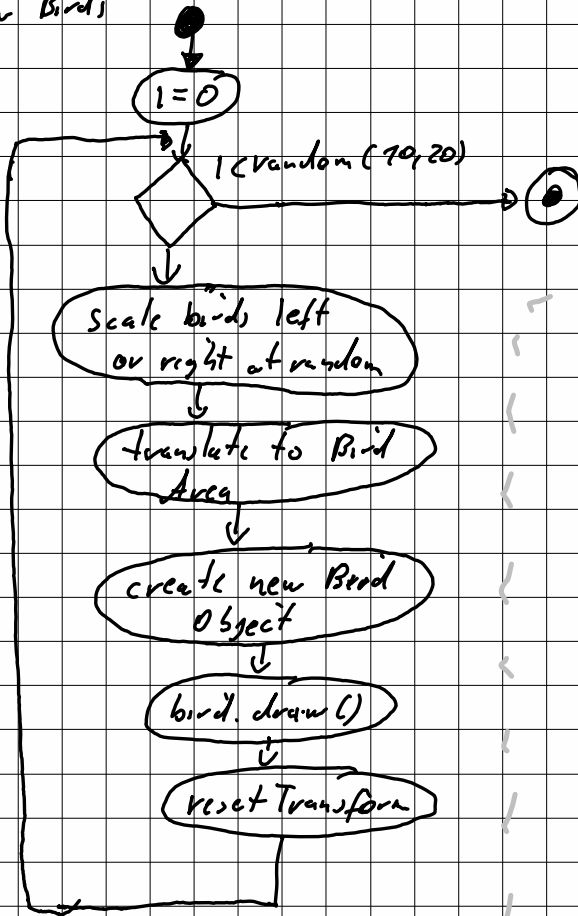 Birds
i = 0
i < random (10,20)
scale birds left
or right at random
translate to Bird
Area
create new Bird
Object
bird.draw()
reset Transform